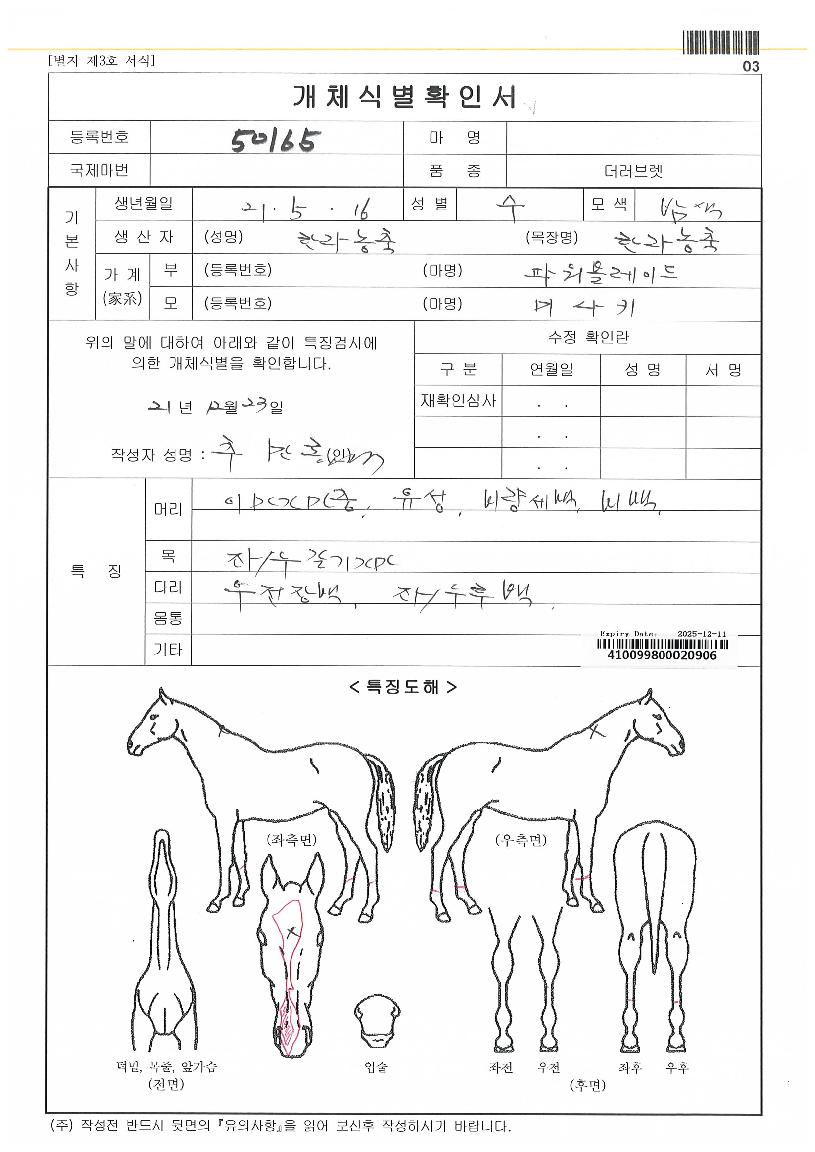 [별지 제3호 서식]
03
개체식별확인서
등록번호 50165 마 명
국제마번 품 종 더러브렛
기본사항
생년월일 21. 5. 16 성 별 수 모 색 밤색
생 산 자 (성명) 한라농축 (목장명) 한라농축
가 계 (家系) 부 (등록번호) (마명) 파워블레이드
모 (등록번호) (마명) 미사키
위의 말에 대하여 아래와 같이 특징검시에
의한 개체식별을 확인합니다.
21년 12월 23일
작성자 성명 : (인)
수정 확인란
구 분 연월일 성 명 서 명
재확인심사 . .
. .
. .
특 징
머리 유성, 비량세백, 비백
목 좌/우갈기
다리 우전장백, 좌/우후백
몸통
기타
Expiry Date: 2025-12-11
410099800020906
< 특징도해 >
(좌측면) (우측면)
턱밑, 목줄, 앞가슴 입술 좌전 우전 좌후 우후
(전면) (후면)
(주) 작성전 반드시 뒷면의 『유의사항』을 읽어 보신후 작성하시기 바랍니다.